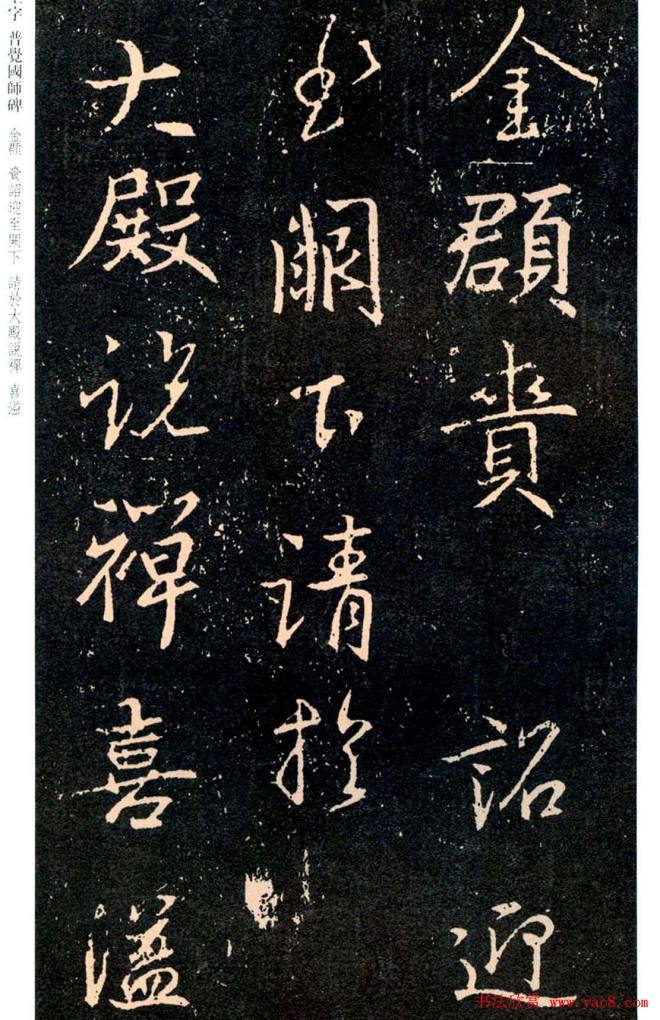 金頵賫 詔迎
至闕下請於
大殿説禪喜溢
字 普覺國師碑 金頵 賫詔迎至闕下 請於大殿説禪 喜溢
书法欣赏 www.yac8.com